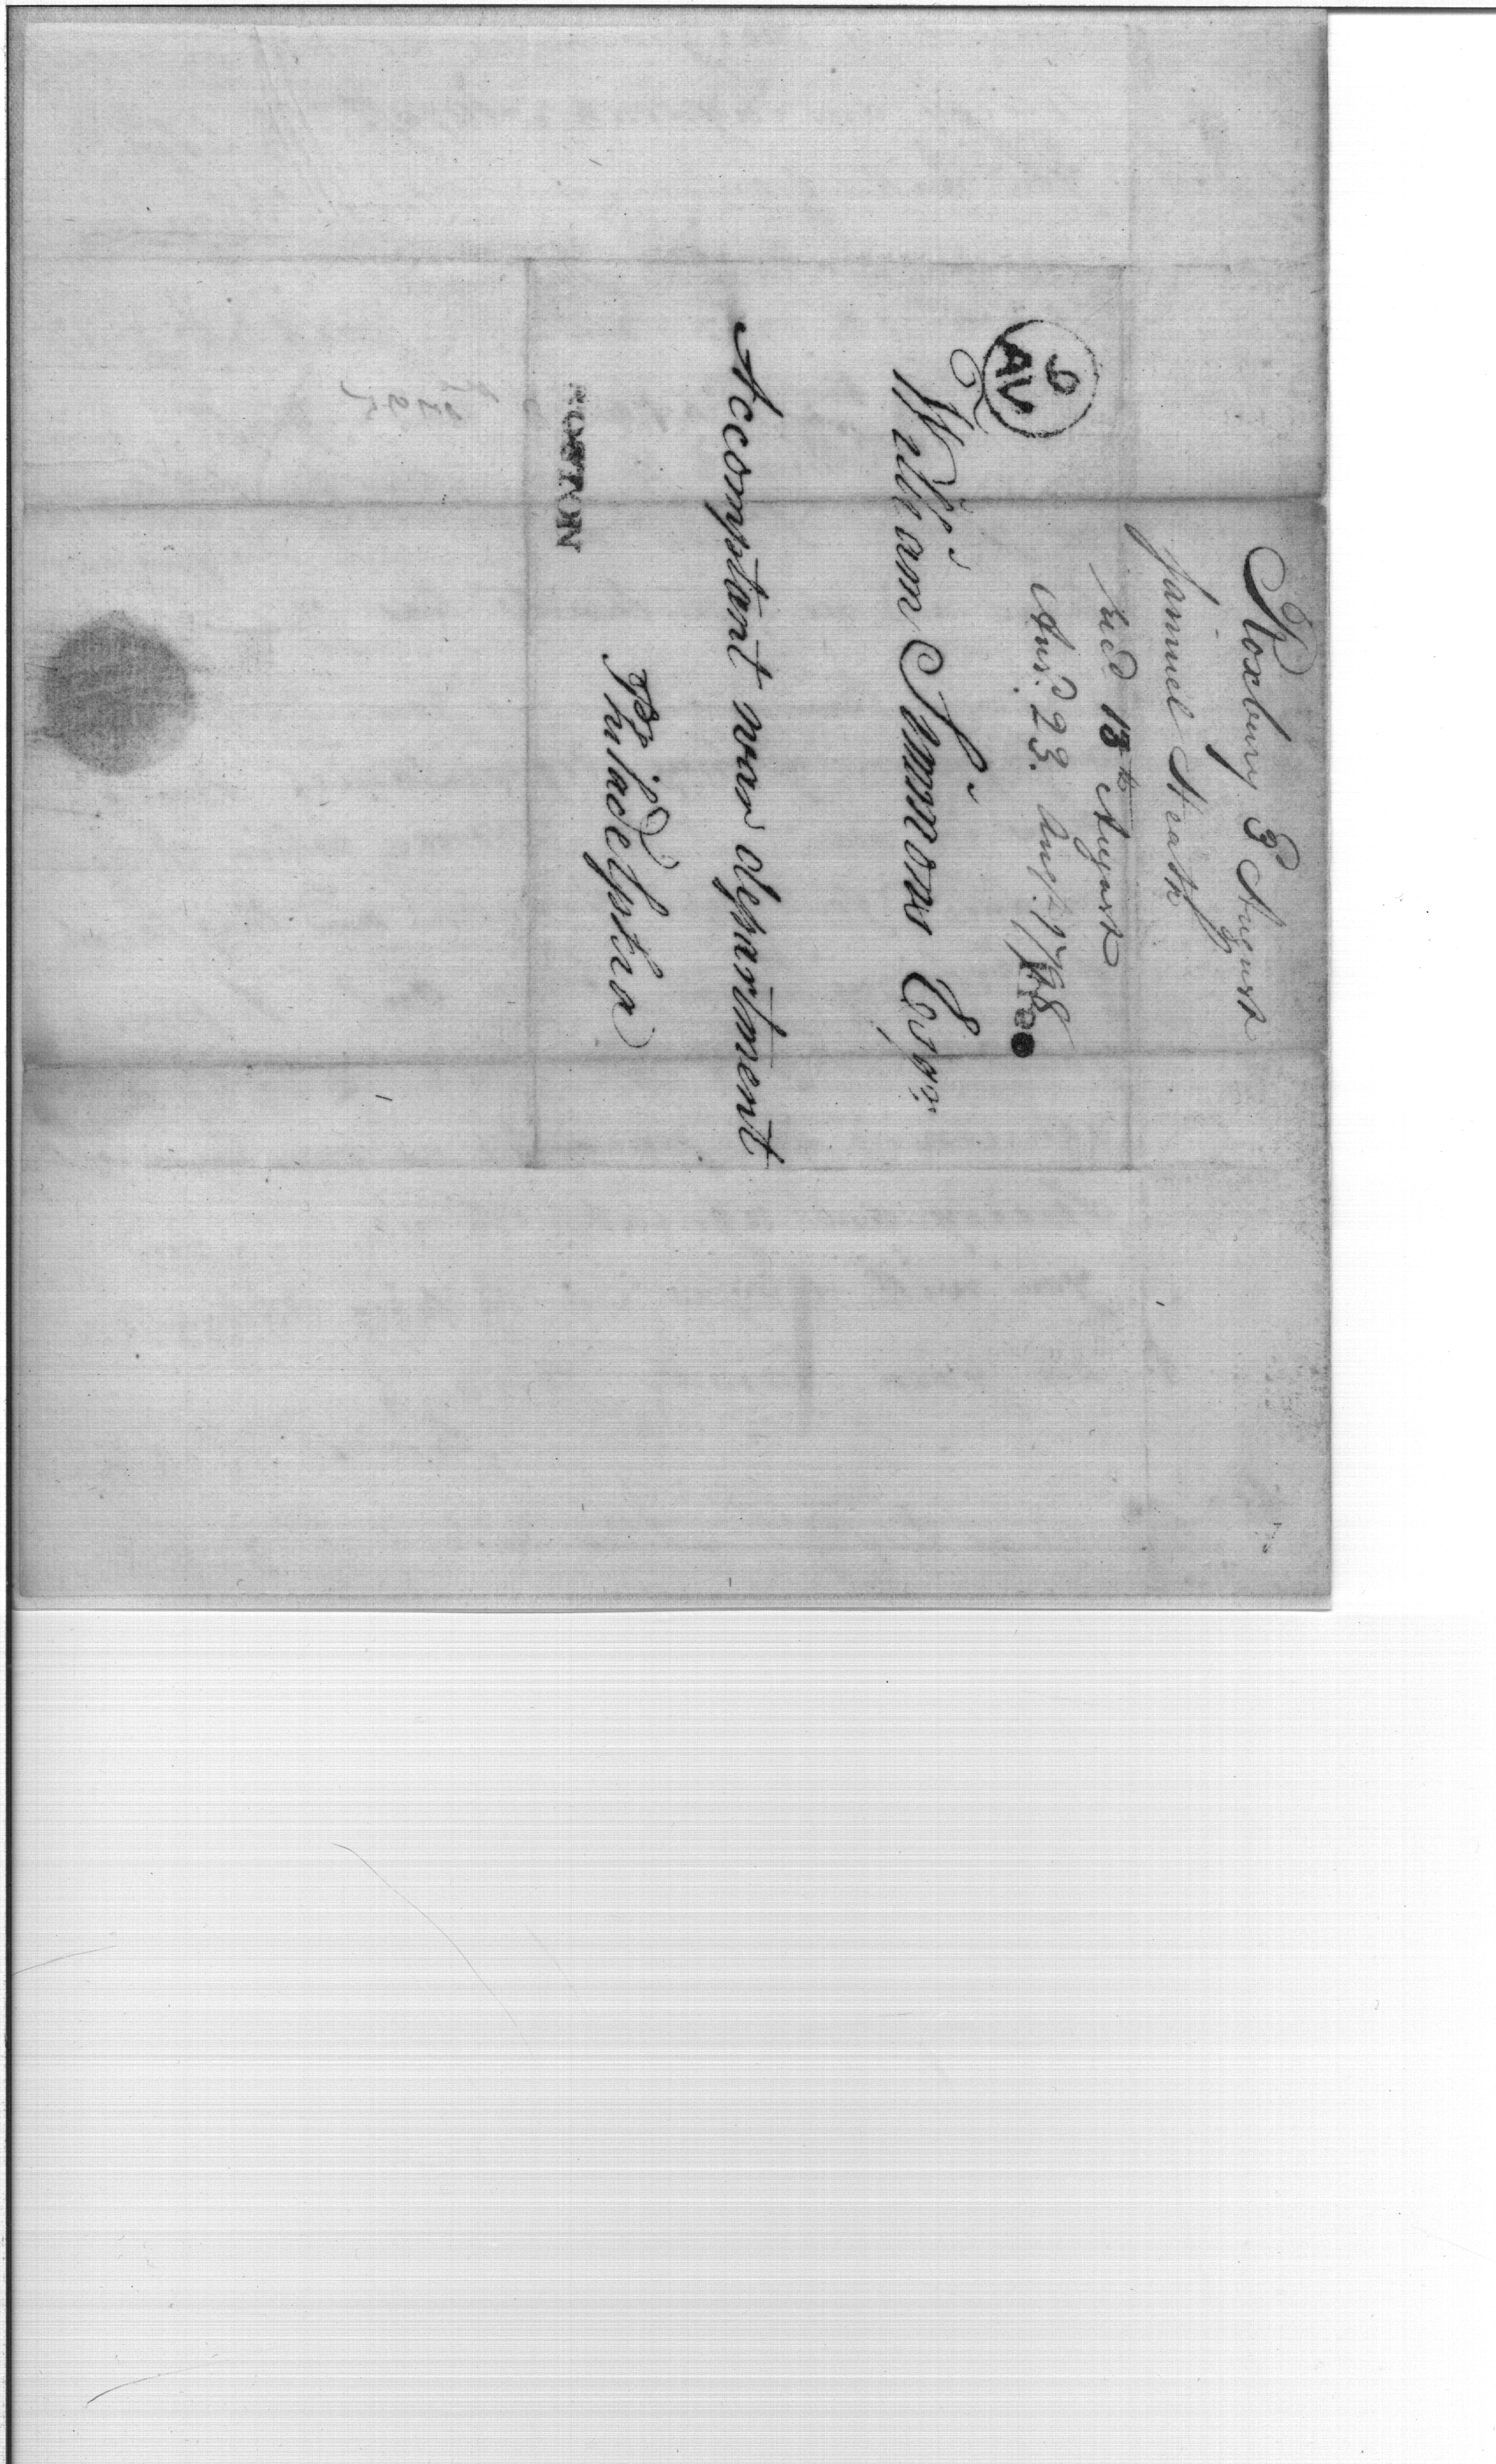 Roxbury 3 August
Samuel Heath
recd 13th August
Ansd. 23. Augt. 1798
9
AV
William Simmons Esqr.
Accomptant war department
Philadelphia
BOSTON